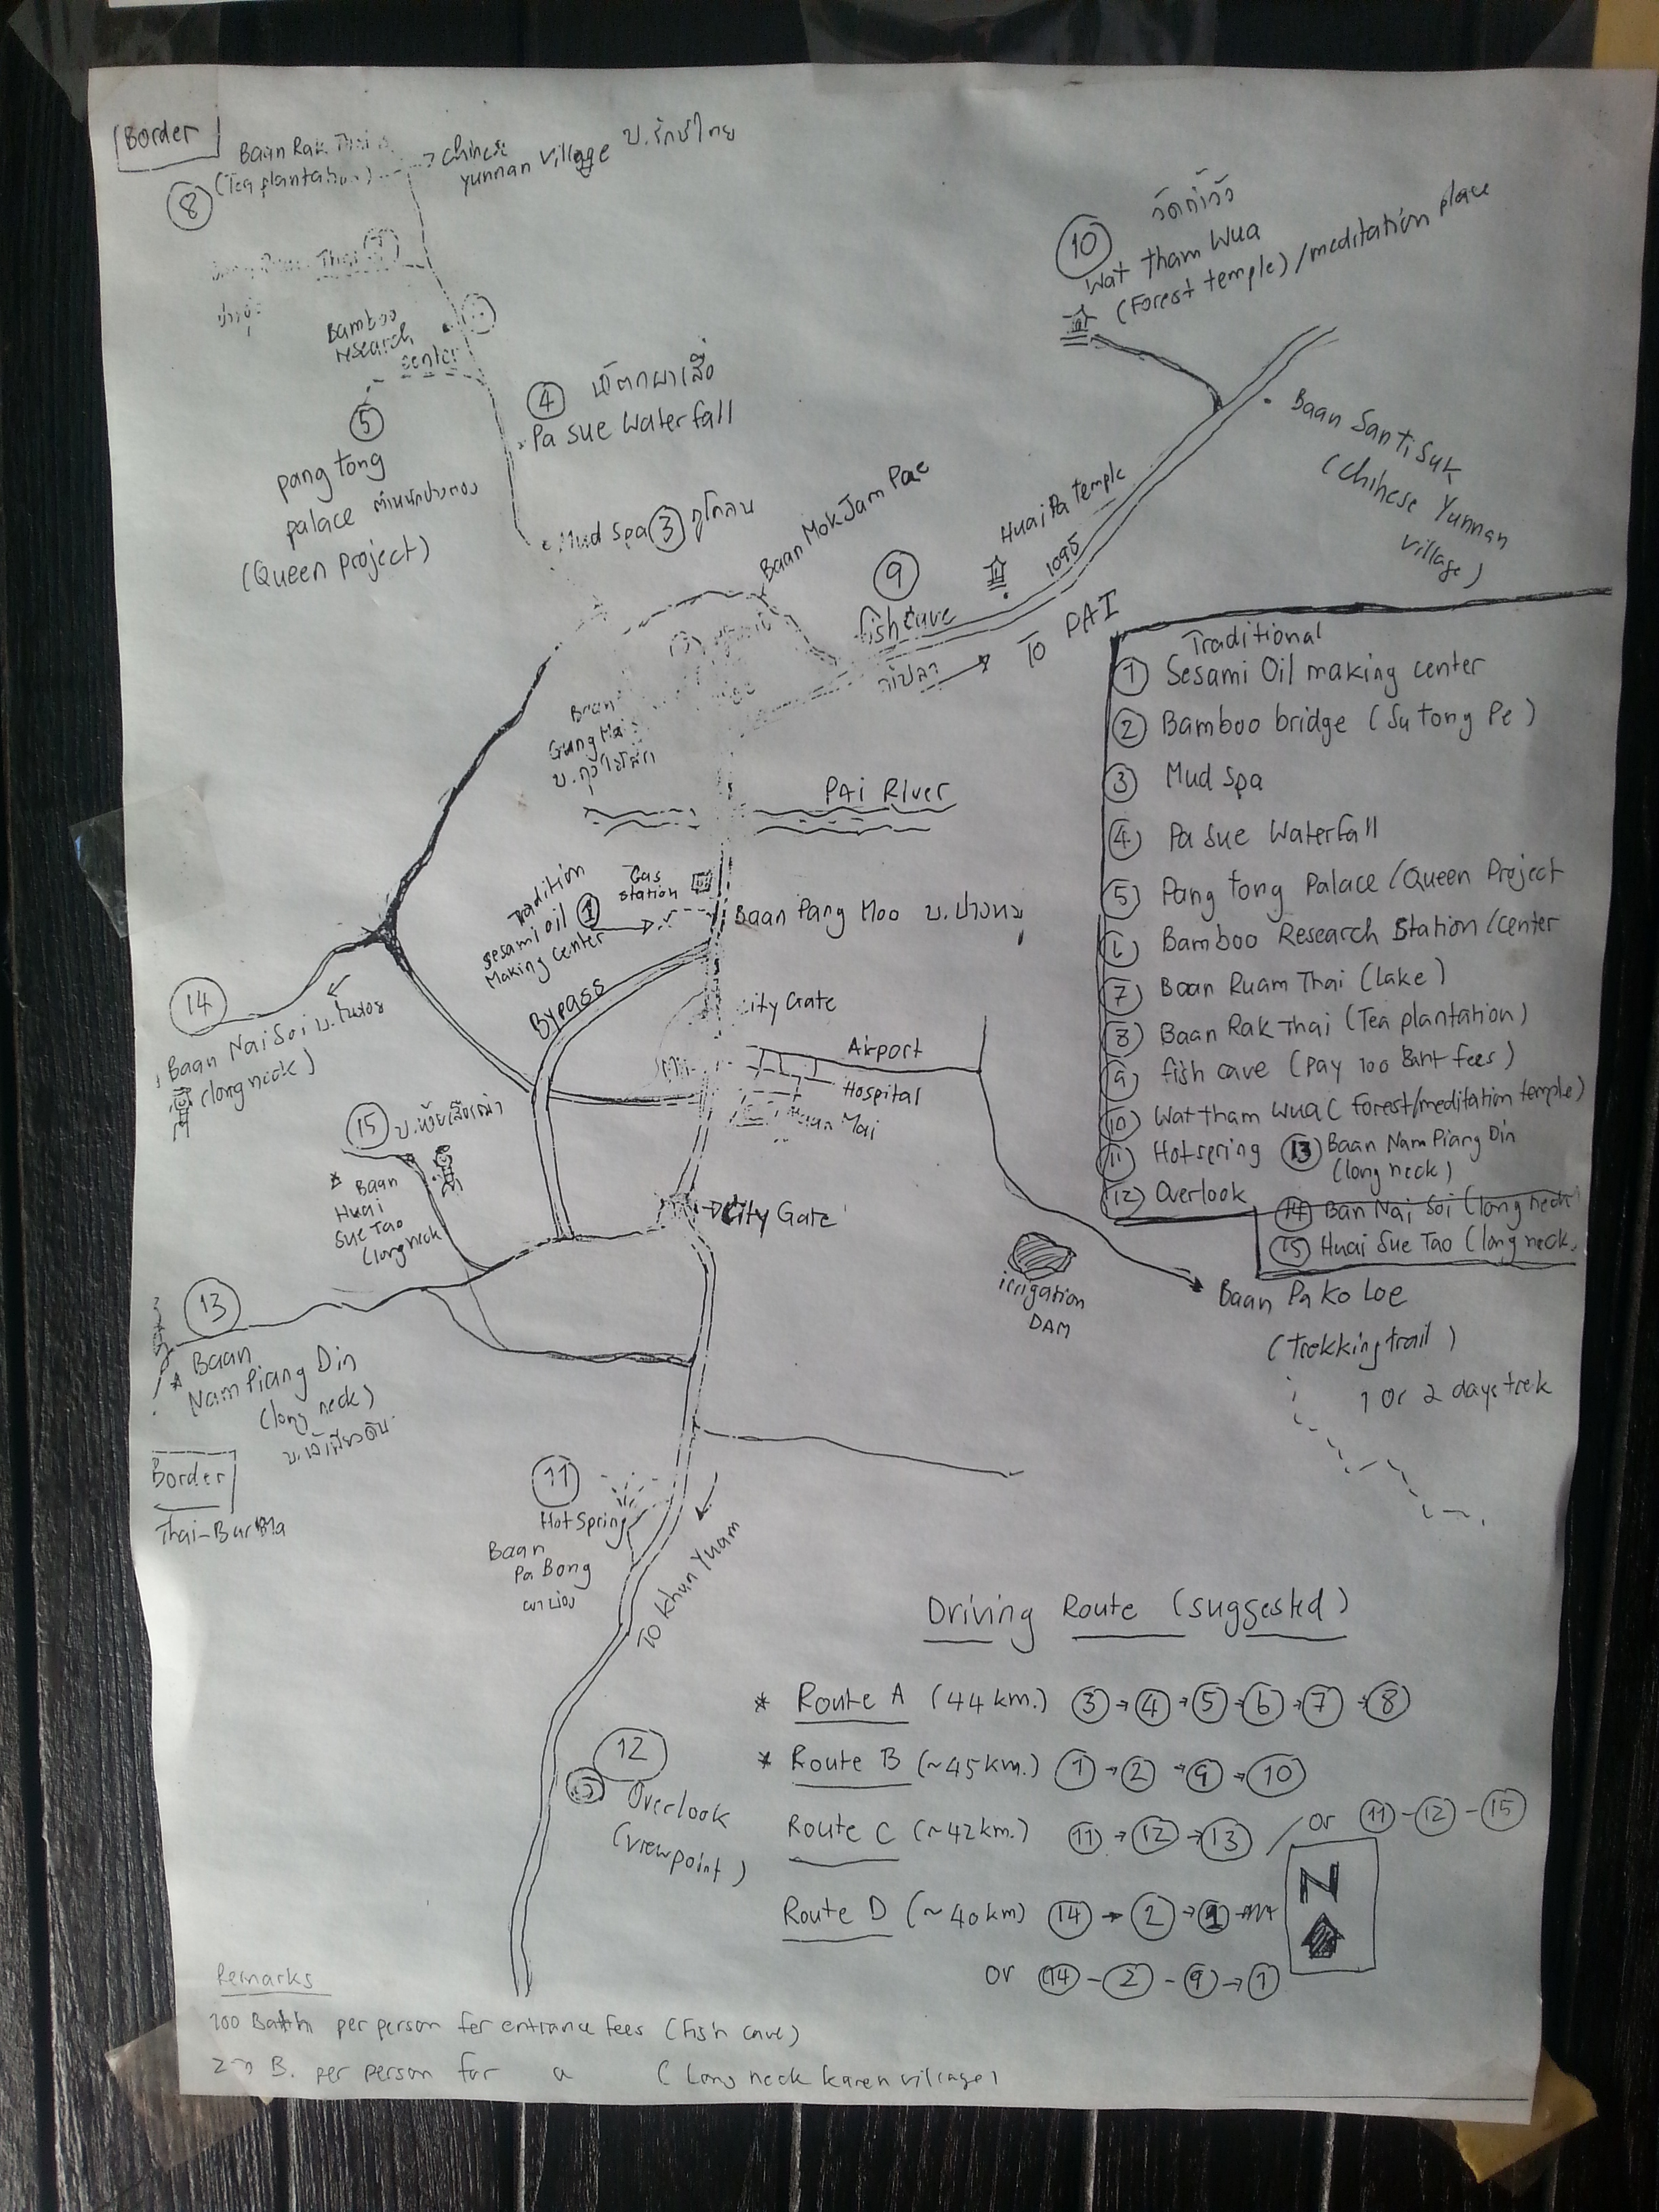 Border
Baan Rak Thai
(Tea plantation)
8
chinese
yunnan village บ.รักษ์ไทย
7
Bamboo
research
center
5
pang tong
palace
(Queen project)
4
Pa Sue Waterfall
Mud Spa 3 ภูโคลน
Baan Mok Jam Pae
10
Wat tham Wua
(Forest temple) / meditation place
Baan Santi Suk
(Chihese Yunnan
village)
Huai Pa temple
1095
9
fish cave
ถ้ำปลา
To PAI
Baan
Gung Mai
PAi River
Gas
station
Tradition
sesami oil 1
Making Center
Baan Pang Moo บ.ปางหมู
Bypass
City Gate
Airport
Hospital
City Gate
14
Baan Nai Soi บ.ในสอย
(long neck)
15
* Baan
Huai
Sue Tao
(long neck
13
* Baan
Nam Piang Din
(long neck)
Border
Thai-Burma
11
Hot Spring
Baan
Pa Bong
ผาบ่อง
To Khun Yuam
12
Overlook
(viewpoint)
irrigation
DAM
Baan Pa Ko Loe
(trekking trail)
1 or 2 days trek
Traditional
1 Sesami Oil making center
2 Bamboo bridge (Su tong Pe)
3 Mud Spa
4 Pa Sue Waterfall
5 Pang tong Palace (Queen Project
6 Bamboo Research Station/center
7 Baan Ruam Thai (lake)
8 Baan Rak Thai (Tea plantation)
9 fish cave (Pay 100 Baht fees)
10 Wat tham Wua (Forest/meditation temple)
11 Hotspring 13 Baan Nam Piang Din
(long neck)
12 Overlook
14 Ban Nai Soi (long neck
15 Huai Sue Tao (long neck.
Driving Route (suggested)
* Route A (44 km.) 3 → 4 → 5 → 6 → 7 → 8
* Route B (~45 km.) 1 → 2 → 9 → 10
Route C (~42 km.) 11 → 12 → 13 / or 11 - 12 - 15
Route D (~40 km) 14 → 2 → 1
or 14 - 2 - 9 → 1
N
Remarks
100 Bath per person for entrance fees (fish cave)
B. per person for (Long neck karen village)